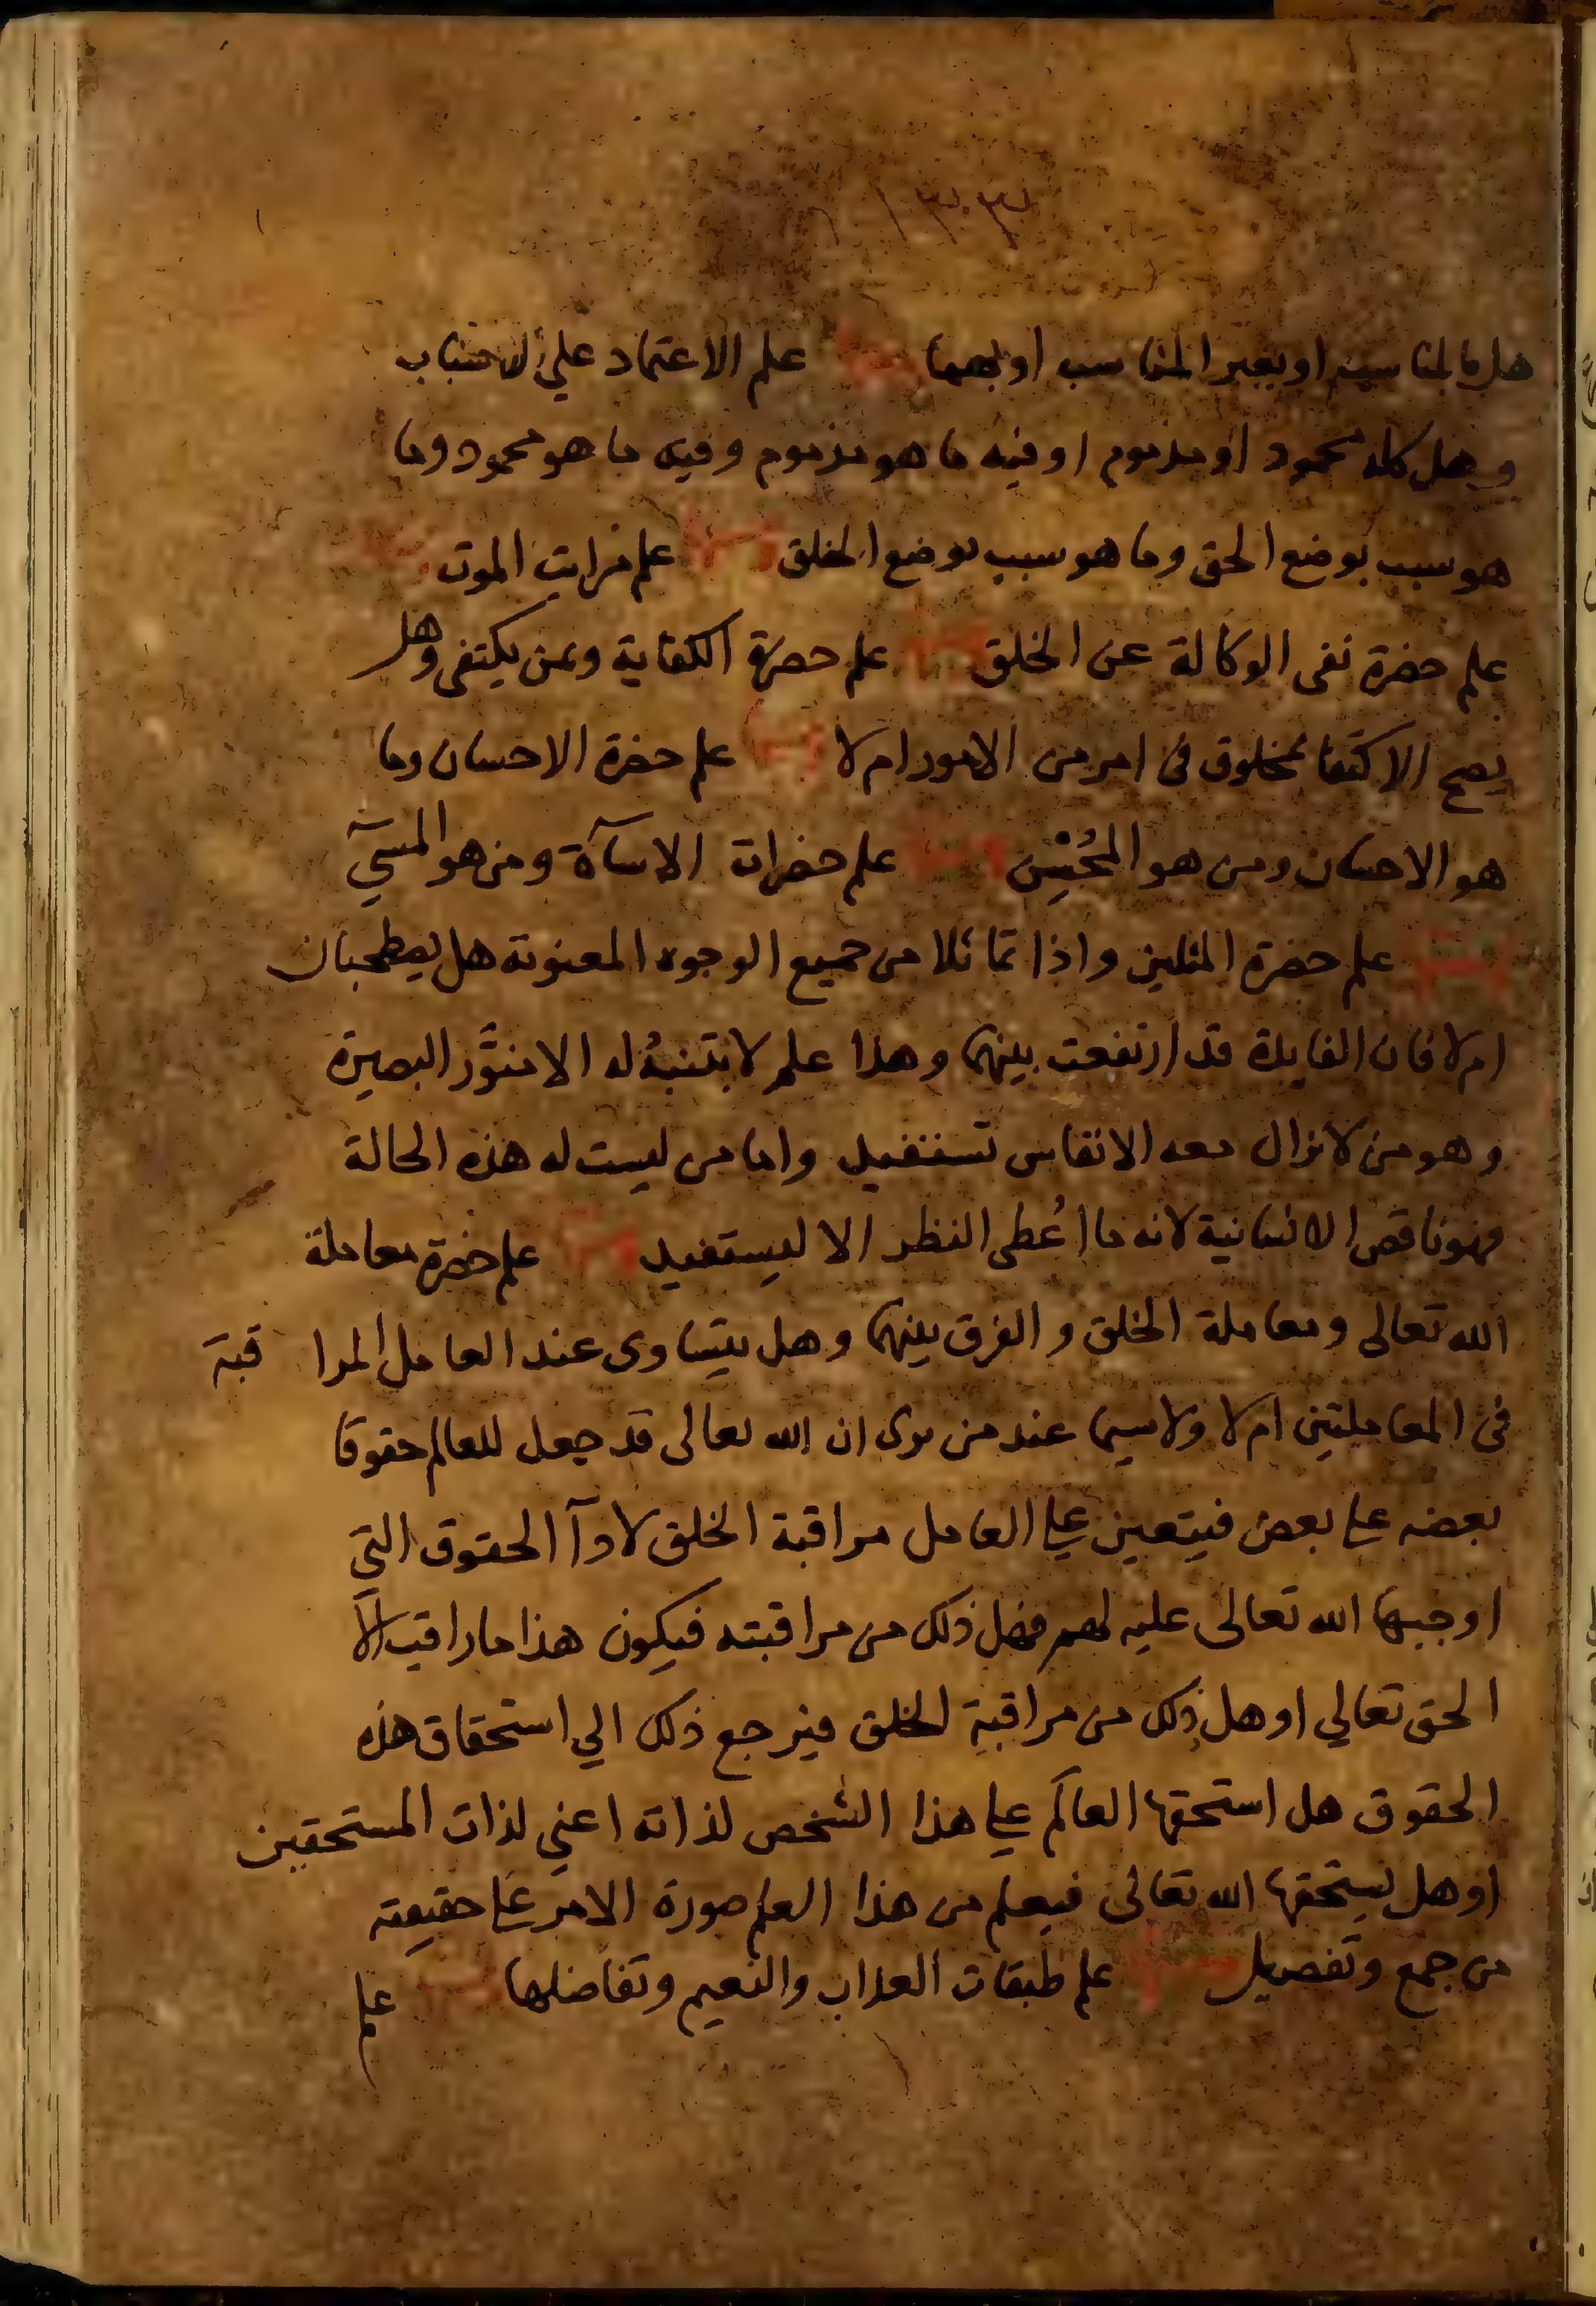 هل بالمناسب او بغير المناسب او بهما علم الاعتماد على الاسباب
وهل كله محمود او مذموم او فيه ما هو مذموم وفيه ما هو محمود وما
هو سبب بوضع الحق وما هو سبب بوضع الخلق علم مراتب الموت
علم حضرة نفى الوكالة عن الخلق علم حضرة الكفاية وبمن يكتفى وهل
يصح الاكتفا بمخلوق فى امر من الامور ام لا علم حضرة الاحسان وما
هو الاحسان ومن هو المحسن علم حضرات الاسآة ومن هو المسيء
علم حضرة المثلين واذا تماثلا من جميع الوجوه المعنوية هل يصطحبان
ام لا فان الفايدة قد ارتفعت بينهما وهذا علم لا يتنبه له الا منوّر البصيرة
وهو من لا يزال معه الانفاس تستفيد واما من ليست له هذه الحالة
فهو ناقص الانسانية لانه ما اُعطى النظر الا ليستفيد علم حضرة معاملة
الله تعالى ومعاملة الخلق والفرق بينهما وهل يتساوى عند العامل المراقبة
فى المعاملتين ام لا ولاسيما عند من يرى ان الله تعالى قد جعل للعالم حقوقا
بعضه على بعض فيتعين على العامل مراقبة الخلق لادآ الحقوق التي
اوجبها الله تعالى عليه لهم فهل ذلك من مراقبته فيكون هذا ما راقب الّا
الحق تعالي او هل ذلك من مراقبة الخلق فيرجع ذلك الي استحقاق هذه
الحقوق هل استحقها العالَم على هذا الشخص لذاته اعني لذات المستحقين
او هل يستحقها الله تعالى فيعلم من هذا العلم صورة الامر على حقيقته
من جمع وتفصيل علم طبقات العذاب والنعيم وتفاضلها علم